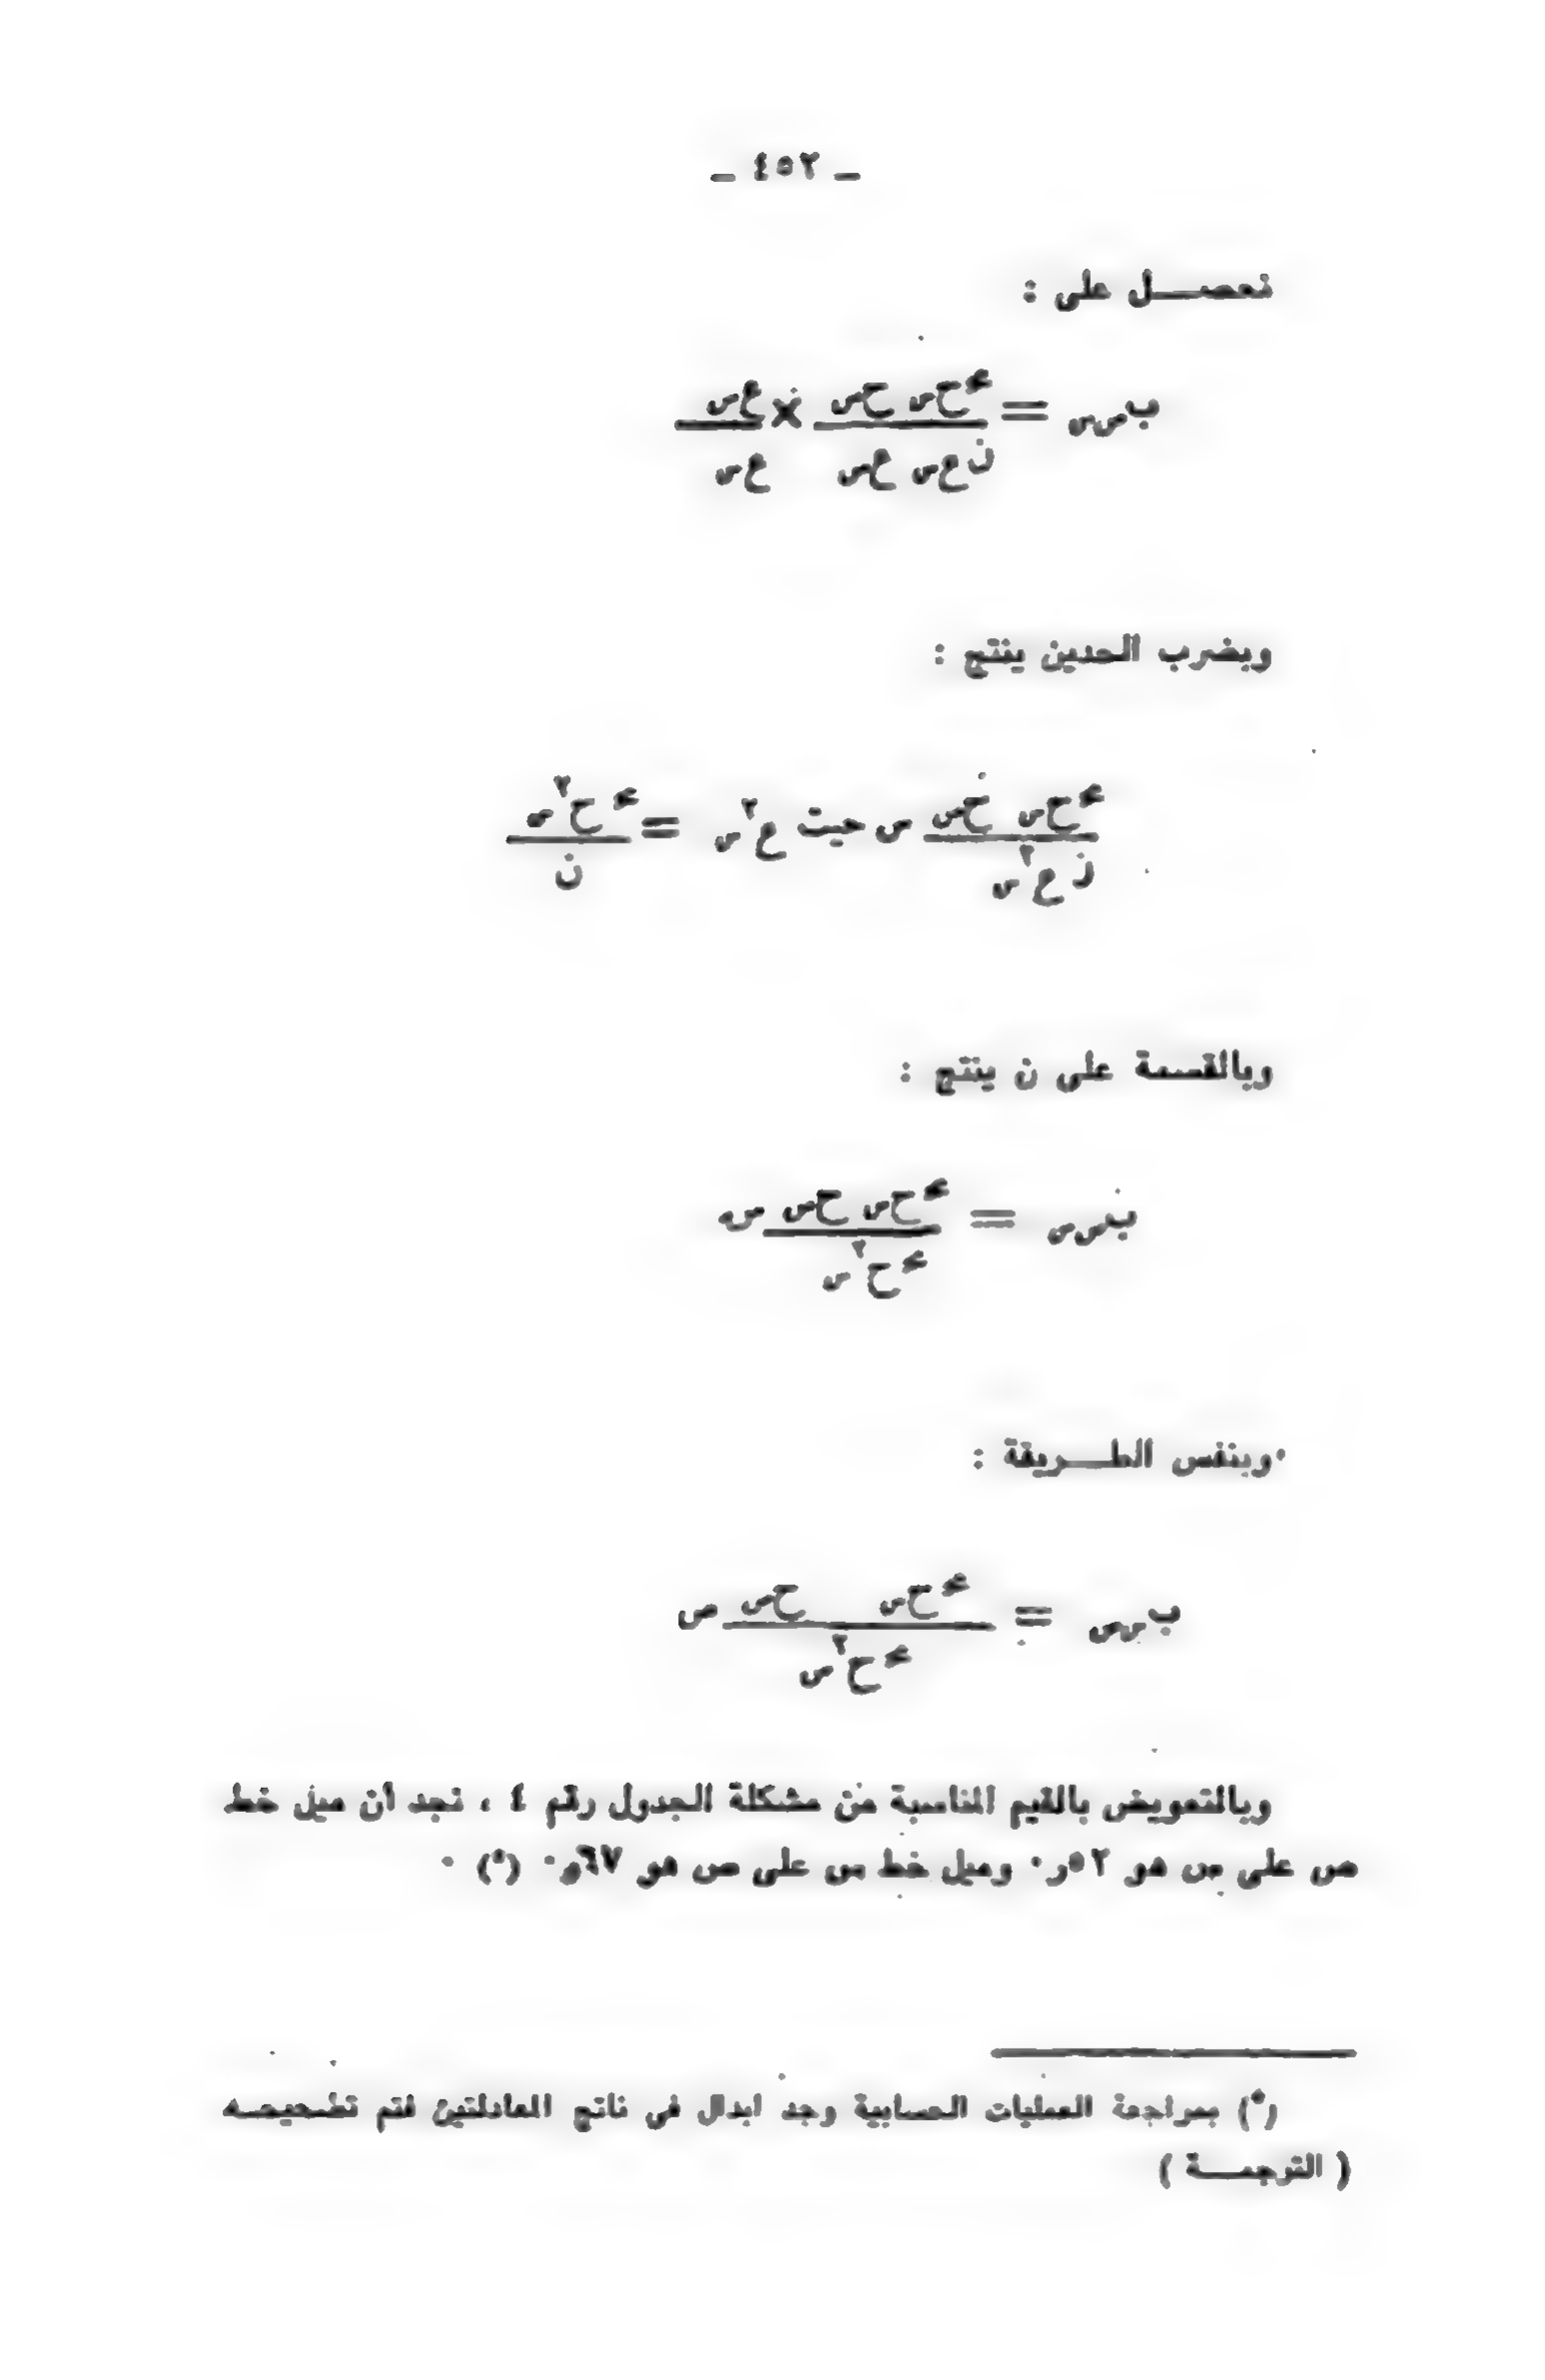 ـ ٤٥٢ ـ
نحصـــل على :
ب ص س = مح ح س ح ص / ن ع س ع ص × ع ص / ع س
وبضرب الحدين ينتج :
مح ح س ح ص / ن ع٢ س س حيث ع٢ س = مح ح٢ س / ن
وبالقسمة على ن ينتج :
ب ص س = مح ح س ح ص / مح ح٢ س
وبنفس الطـــريقة :
ب س ص = مح ح س ح ص / مح ح٢ ص
وبالتعويض بالقيم المناسبة من مشكلة الجدول رقم ٤ ، نجد أن ميل خط
ص على س هو ٥٢ر٠ وميل خط س على ص هو ٦٧و٠ (*) ٠
(*) بمراجعة العمليات الحسابية وجد ابدال في ناتج المعادلتين فتم تصحيحه
( الترجمـــة )